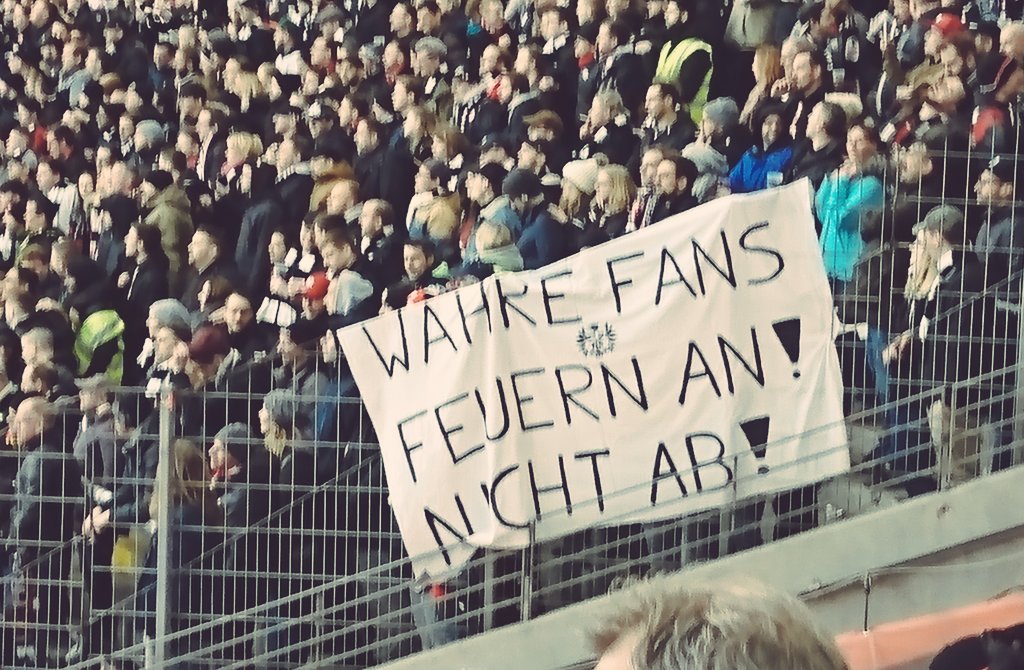 WAHRE FANS
FEUERN AN!
NICHT AB!